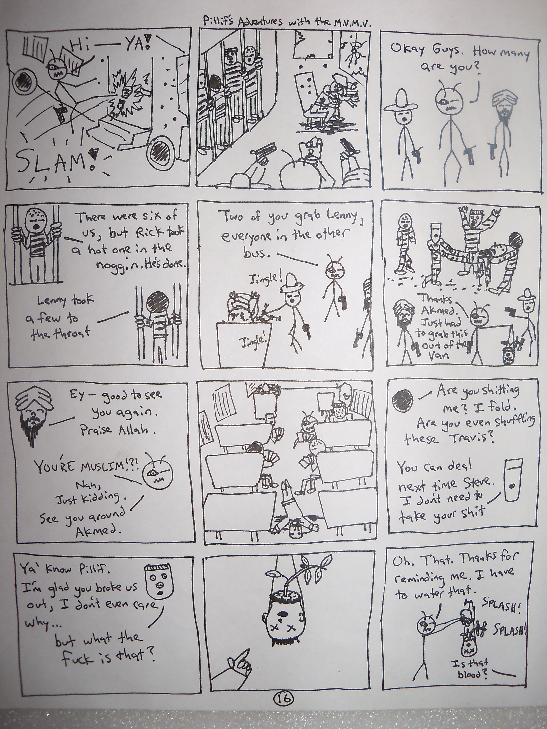 Pillif's Adventures with the M.V.M.V.
Hi—YA!
SLAM!
Okay Guys. How many
are you?
There were six of
us, but Rick took
a hot one in the
noggin. He's done.
Lenny took
a few to
the throat
Two of you grab Lenny,
everyone in the other
bus.
Jingle!
Jingle!
Thanks
Akmed.
Just had
to grab this
out of the
van
Ey— good to see
you again.
Praise Allah.
YOU'RE MUSLIM!?!
Nah,
Just kidding.
See you around
Akmed.
Are you shitting
me? I fold.
Are you even shuffling
these Travis?
You can deal
next time Steve.
I don't need to
take your shit
Ya' know Pillif.
I'm glad you broke us
out, I don't even care
why...
but what the
fuck is that?
Oh. That. Thanks for
reminding me. I have
to water that.
SPLASH!
SPLASH!
Is that
blood?
16